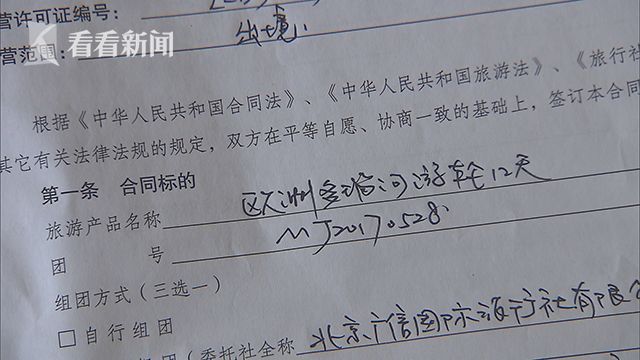 营许可证编号:
看看新闻
营范围: 出境
根据《中华人民共和国合同法》、《中华人民共和国旅游法》、《旅行社
其它有关法律法规的规定，双方在平等自愿、协商一致的基础上，签订本合同
第一条 合同标的
旅游产品名称 欧洲多瑙河游轮12天
团 号 MJ20170528
组团方式（三选一）
□自行组团
（委托社全称 北京广信国际旅行社有限公